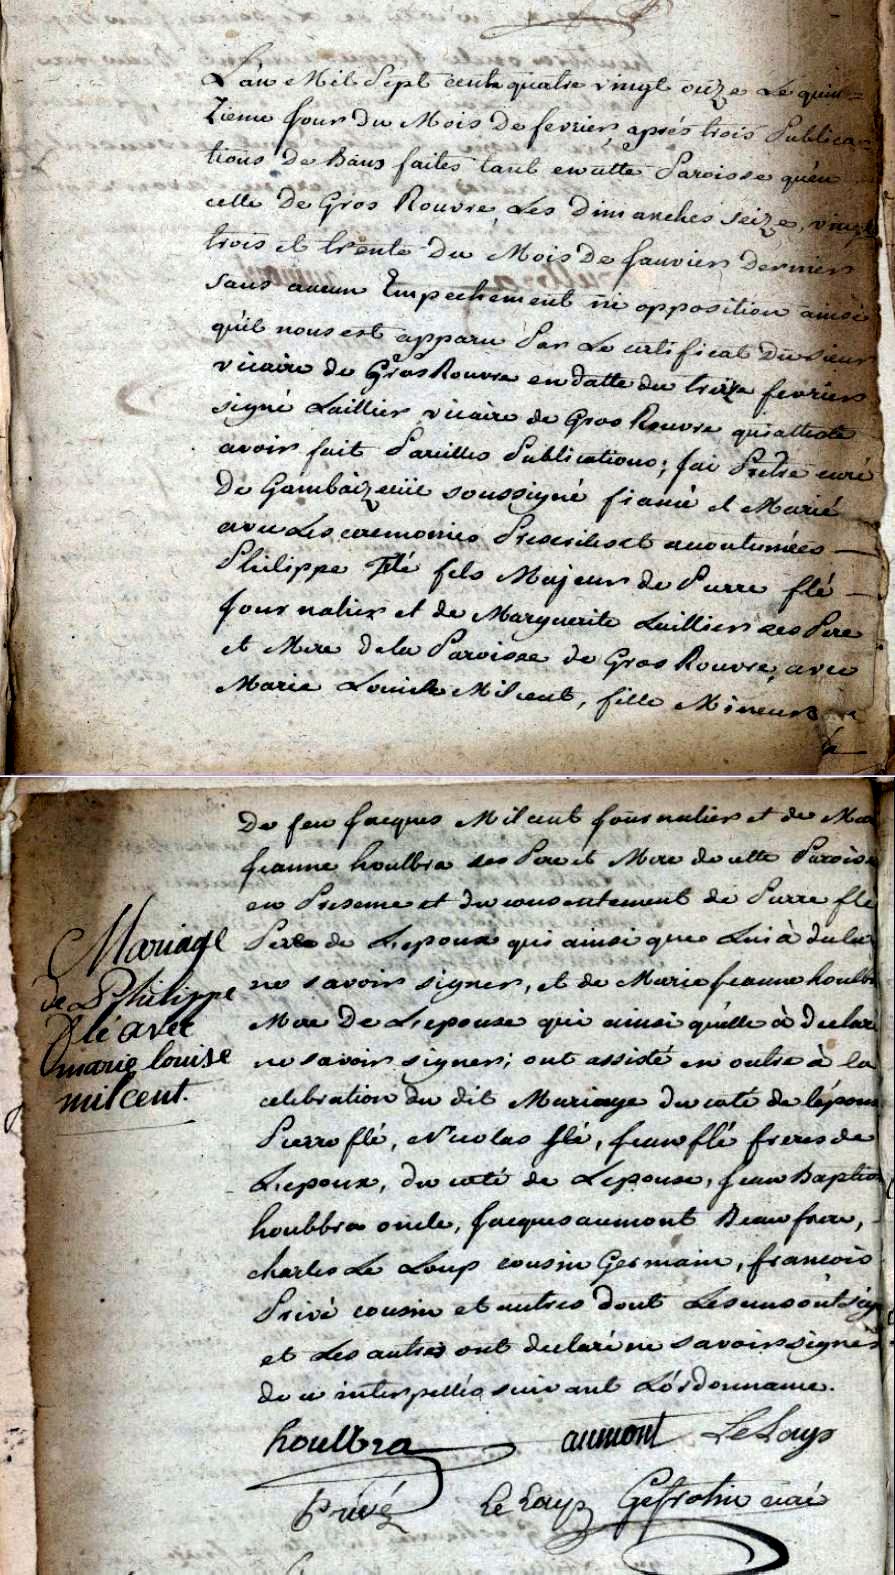 L'an Mil Sept cent quatre vingt onze Le quin=
Zieme Jour du Mois De fevrier, aprés trois Publica=
tions De Bans faites tant en cette Paroisse qu'en
celle De Gros Rouvre, Les Dimanches seize, vingt
trois et trente Du Mois De Janvier Dernier
sans aucun Empechement ni opposition ainsi
qu'il nous est apparu Par Le certificat du sieur
vicaire de Gros Rouvre en datte du treize fevrier
signé Laillier vicaire de Gros Rouvre qui atteste
avoir fait Pareilles Publications; Jai Pretre curé
De Gambaizeüil soussigné fiancé et Marié
avec Les ceremonies Prescrites et accoutumées —
Philippe flé fils Majeur de Pierre flé —
Journalier et de Marguerite Luillier ses Pere
et Mere de la Paroisse de Gros Rouvre, avec
Marie Louise Milcent, fille Mineure
De feu Jacques Milcent Journalier et de Mar
Jeanne houlbra ses Pere et Mere de cette Paroisse
en Presence et du consentement de Pierre flé
Pere de L'epoux qui ainsi que Lui à declar
ne savoir signer, et de Marie Jeanne houlbr
Mere De L'epouse qui ainsi qu'elle à declar
ne savoir signer; ont assisté en outre à la
celebration du dit Mariage du coté de l'époux
Pierre flé, Nicolas flé, Jean flé freres de
L'epoux, du coté de L'epouse, Jean Baptis
houlbbra oncle, Jacques aumont Beaufrere,
charles Le Loup cousin Germain, francois
Privé cousin et autres dont Les uns ont sig
et Les autres ont declaré ne savoir signer
de ce interpellés suivant L'ordonnance.
Mariage
de Philippe
flé avec
marie louise
milcent.
houlbra aumont Le Loup
Privé Le Loup curé